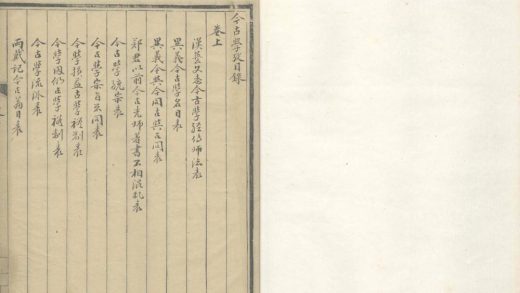 今古學攷目錄
卷上
漢藝文志今古學經傳師法表
異義今古學名目表
異義今與今同古與古同表
鄭君以前今古先師著書不相混亂表
今古學統宗表
今古學宗旨不同表
今學損益古學禮制表
今學因仍古學禮制表
今古學流派表
兩戴記今古篇目表